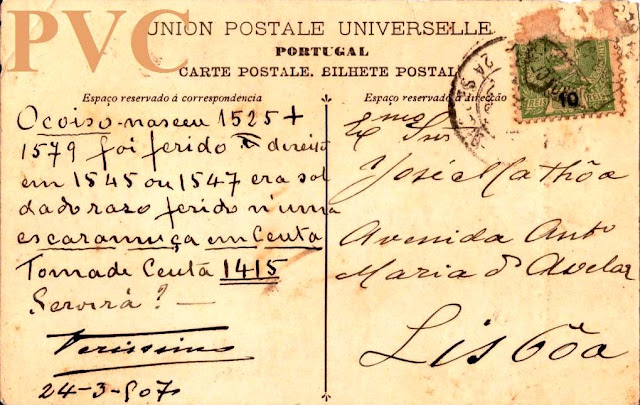 PVC
UNION POSTALE UNIVERSELLE
PORTUGAL
CARTE POSTALE. BILHETE POSTAL
Espaço reservado á correspondencia
O coiso nasceu 1525 +
1579 foi ferido direito
em 1545 ou 1547 era sol
dado razo ferido n'uma
escaramuça em Ceuta
Tomada de Ceuta 1415
Servirá? —
Verissimo
24-3-907
Espaço reservado á direcção
Exmo Snr
José Mathôa
Avenida Anto
Maria d'Avelar
Lisbôa
10